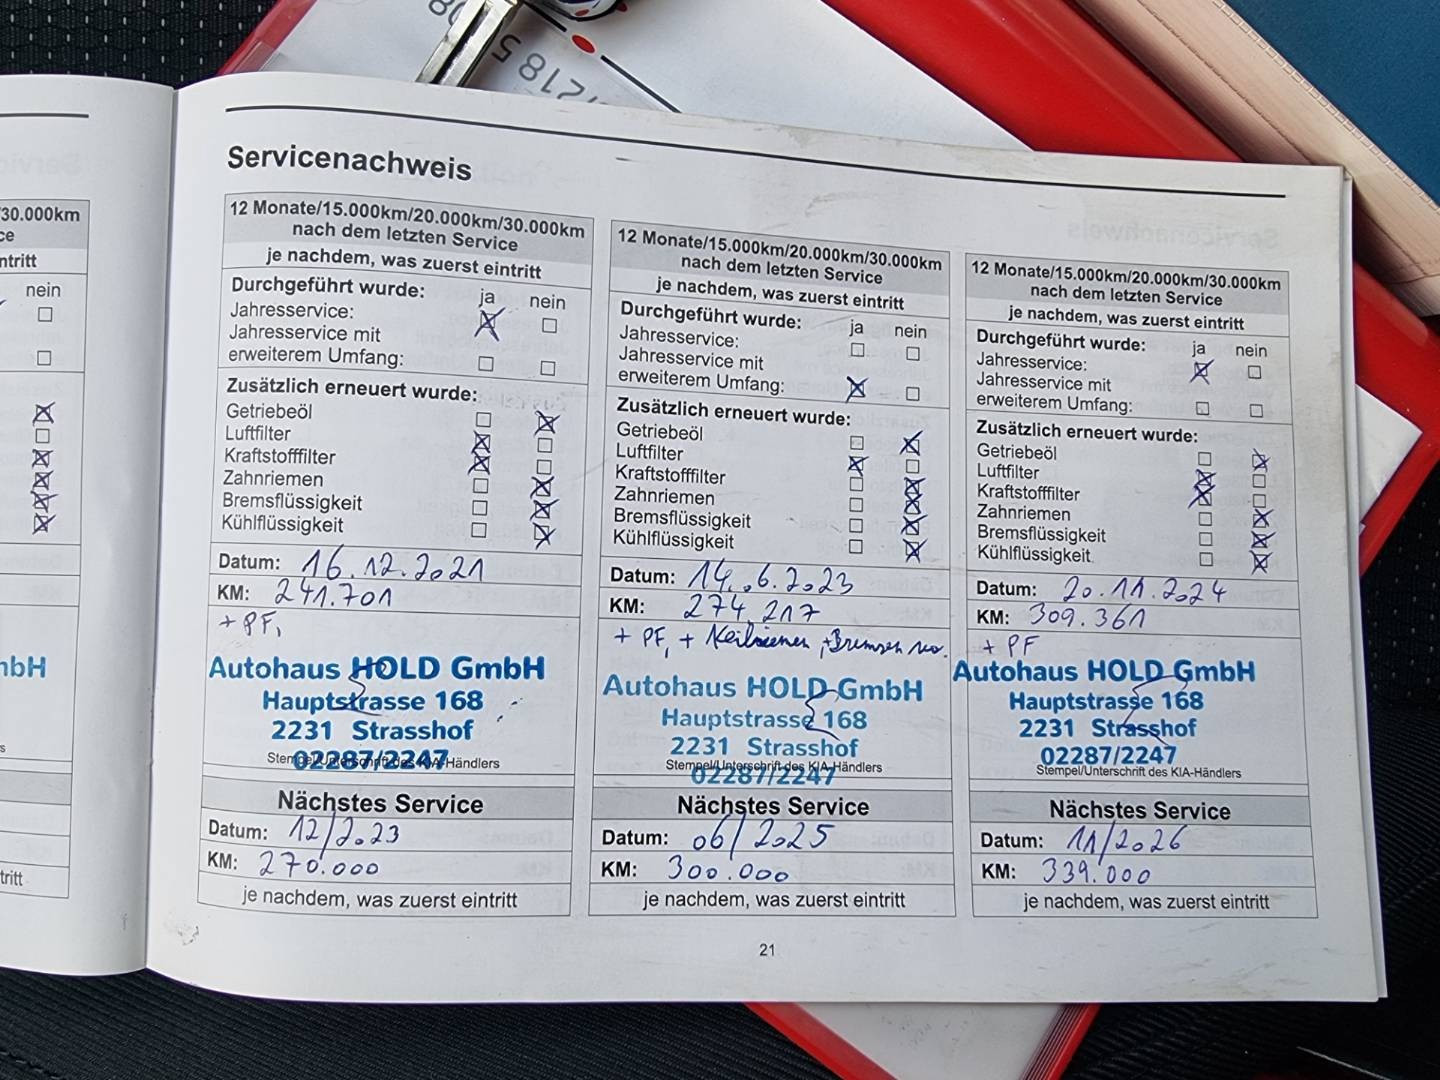 218 5
30.000km
ce
ntritt
nein
nbH
s
tritt
Servicenachweis
12 Monate/15.000km/20.000km/30.000km
nach dem letzten Service
je nachdem, was zuerst eintritt
Durchgeführt wurde: ja nein
Jahresservice:
Jahresservice mit
erweiterem Umfang:
Zusätzlich erneuert wurde:
Getriebeöl
Luftfilter
Kraftstofffilter
Zahnriemen
Bremsflüssigkeit
Kühlflüssigkeit
Datum: 16.12.2021
KM: 241.701
+ PF,
Autohaus HOLD GmbH
Hauptstrasse 168
2231 Strasshof
02287/2247
Stempel/Unterschrift des KIA-Händlers
Nächstes Service
Datum: 12/2023
KM: 270.000
je nachdem, was zuerst eintritt
12 Monate/15.000km/20.000km/30.000km
nach dem letzten Service
je nachdem, was zuerst eintritt
Durchgeführt wurde: ja nein
Jahresservice:
Jahresservice mit
erweiterem Umfang:
Zusätzlich erneuert wurde:
Getriebeöl
Luftfilter
Kraftstofffilter
Zahnriemen
Bremsflüssigkeit
Kühlflüssigkeit
Datum: 14.6.2023
KM: 274.217
+ PF, + Keilriemen, + Bremsen neu.
Autohaus HOLD GmbH
Hauptstrasse 168
2231 Strasshof
02287/2247
Stempel/Unterschrift des KIA-Händlers
Nächstes Service
Datum: 06/2025
KM: 300.000
je nachdem, was zuerst eintritt
12 Monate/15.000km/20.000km/30.000km
nach dem letzten Service
je nachdem, was zuerst eintritt
Durchgeführt wurde: ja nein
Jahresservice:
Jahresservice mit
erweiterem Umfang:
Zusätzlich erneuert wurde:
Getriebeöl
Luftfilter
Kraftstofffilter
Zahnriemen
Bremsflüssigkeit
Kühlflüssigkeit
Datum: 20.11.2024
KM: 309.361
+ PF
Autohaus HOLD GmbH
Hauptstrasse 168
2231 Strasshof
02287/2247
Stempel/Unterschrift des KIA-Händlers
Nächstes Service
Datum: 11/2026
KM: 339.000
je nachdem, was zuerst eintritt
21